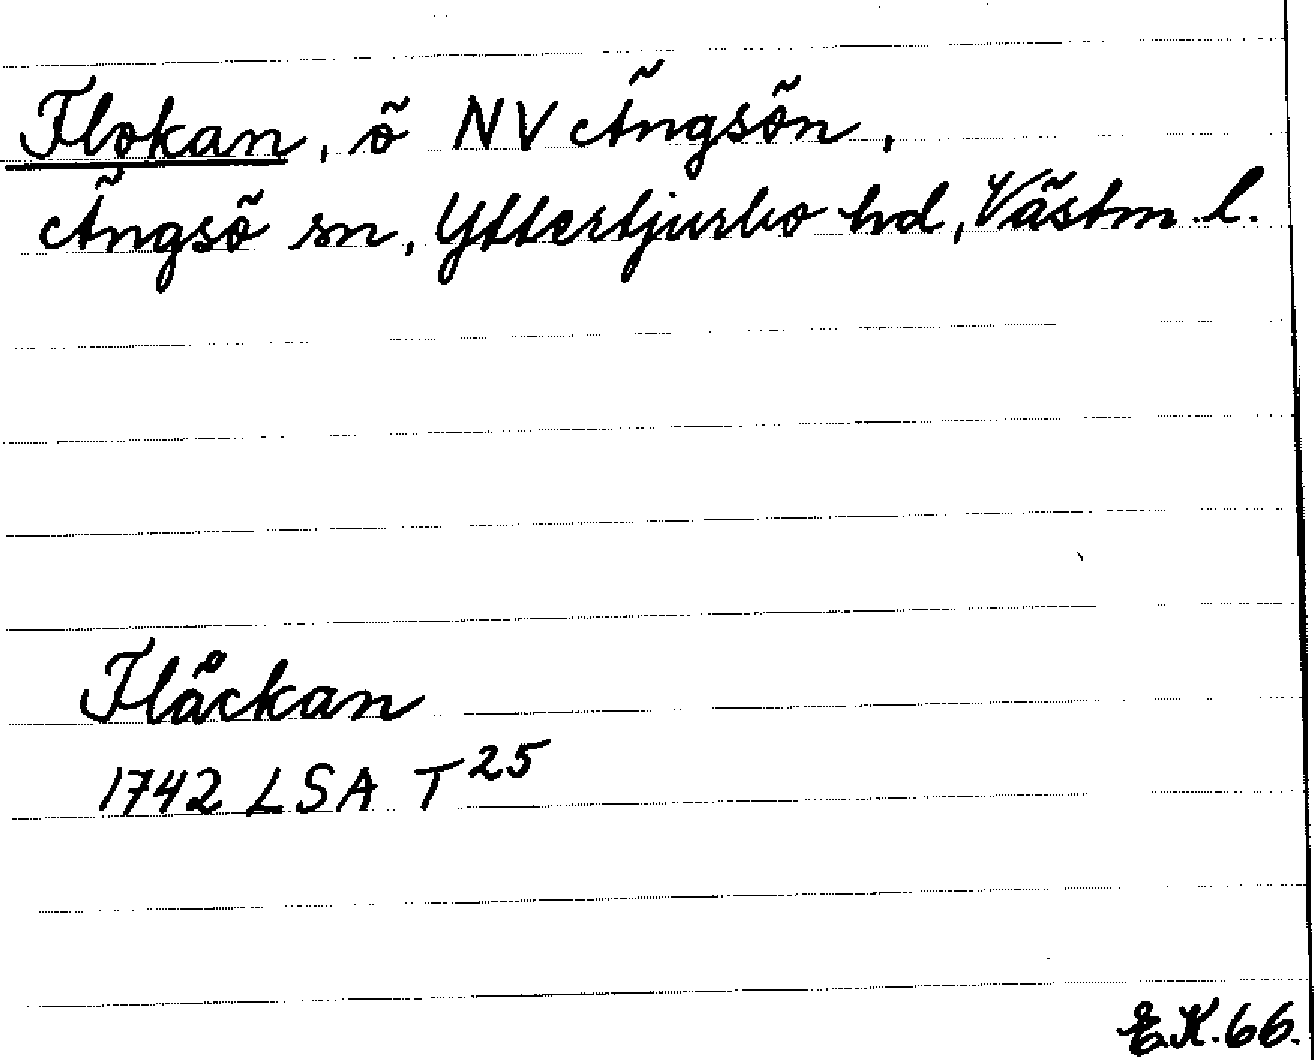 Flokan, ö NV Ängsön,
Ängsö sn, Yttertjurbo hd, Västm. l.
Flåckan
1742 LSA T 25
E.K. 66.